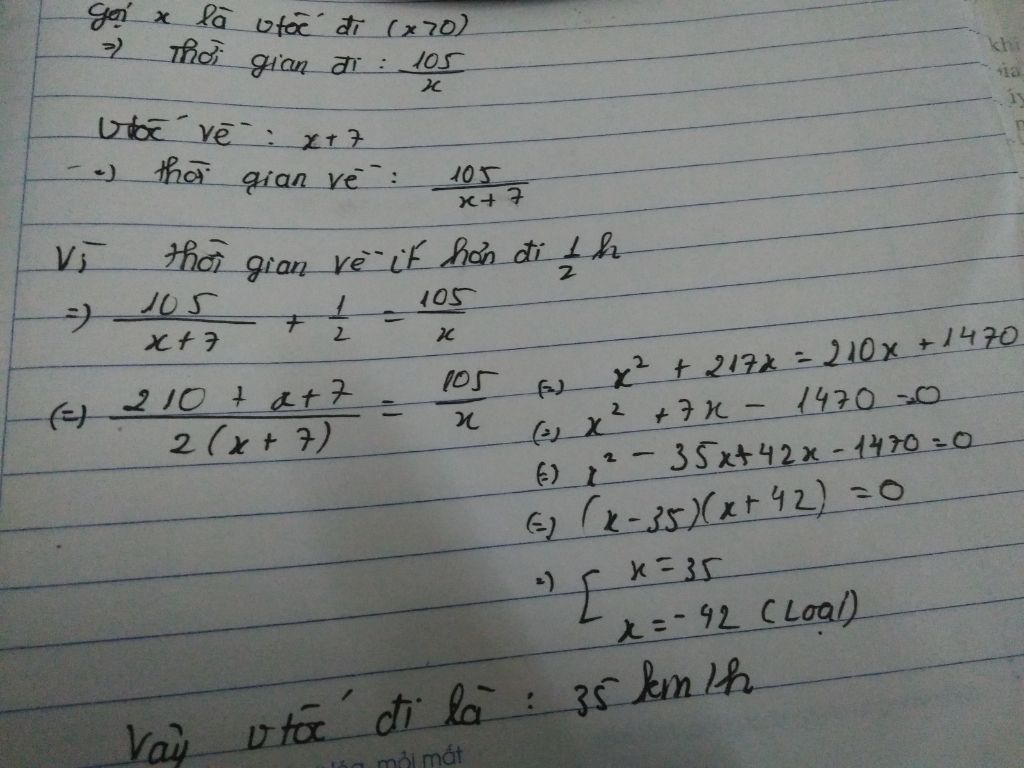 gọi x là vtốc đi (x>0)
=) Thời gian đi : 105/x
Vtốc về : x+7
=) thời gian về : 105/(x+7)
Vì thời gian về ít hơn đi 1/2 h
=) 105/(x+7) + 1/2 = 105/x
(=) (210 + x+7)/(2(x+7)) = 105/x
(=) x² + 217x = 210x + 1470
(=) x² + 7x - 1470 = 0
(=) x² - 35x + 42x - 1470 = 0
(=) (x-35)(x+42) = 0
=) [ x = 35
x = -42 (Loại)
Vậy vtốc đi là : 35 km/h
mỏi mắt
khi